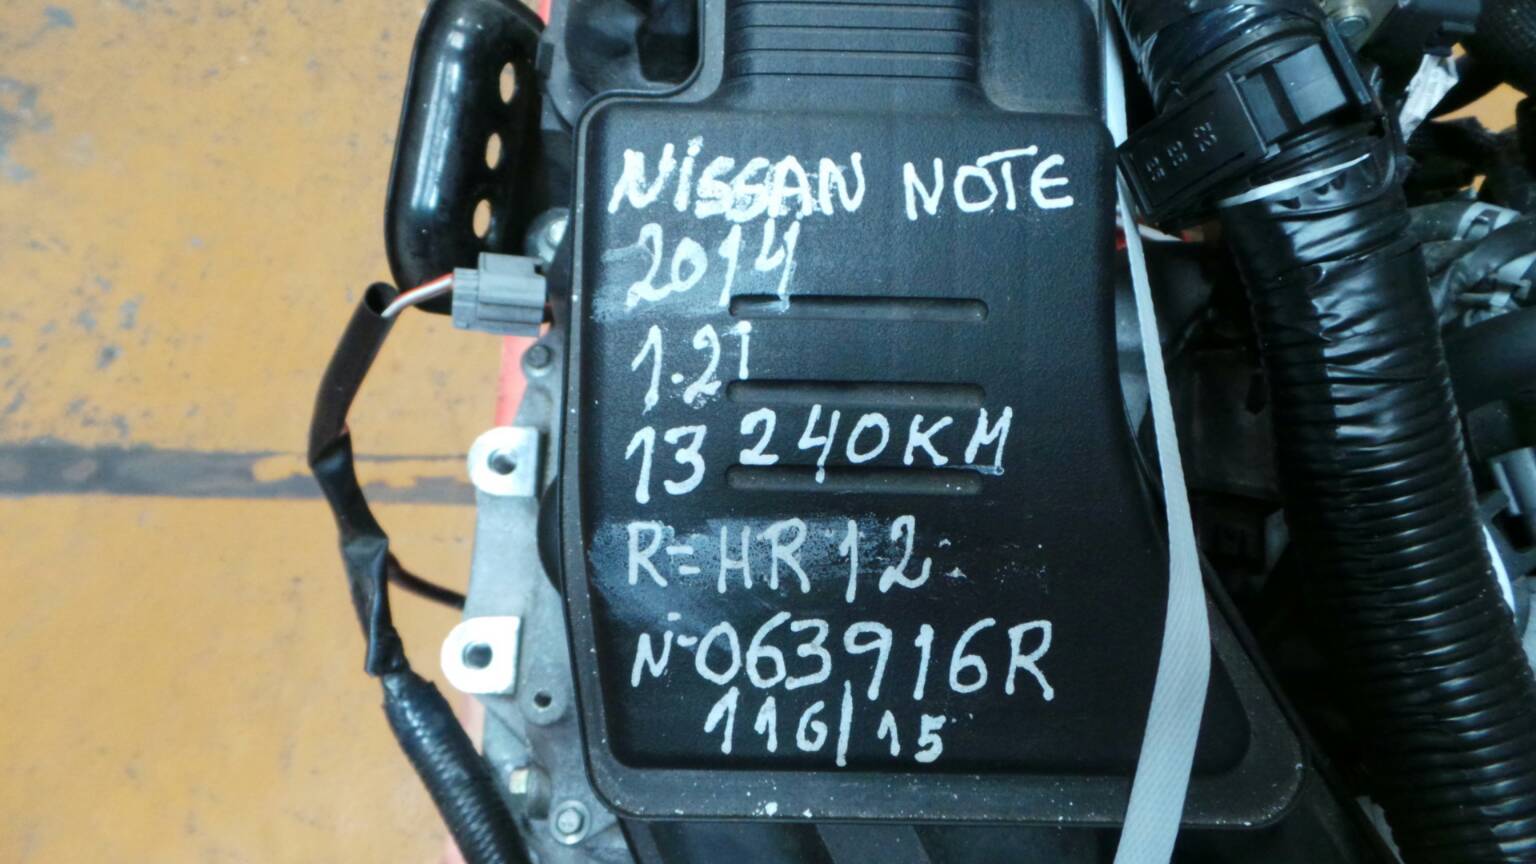 NiSSAN NOTE
2014
1.2i
13 240KM
R=HR12
N-063916R
116/15